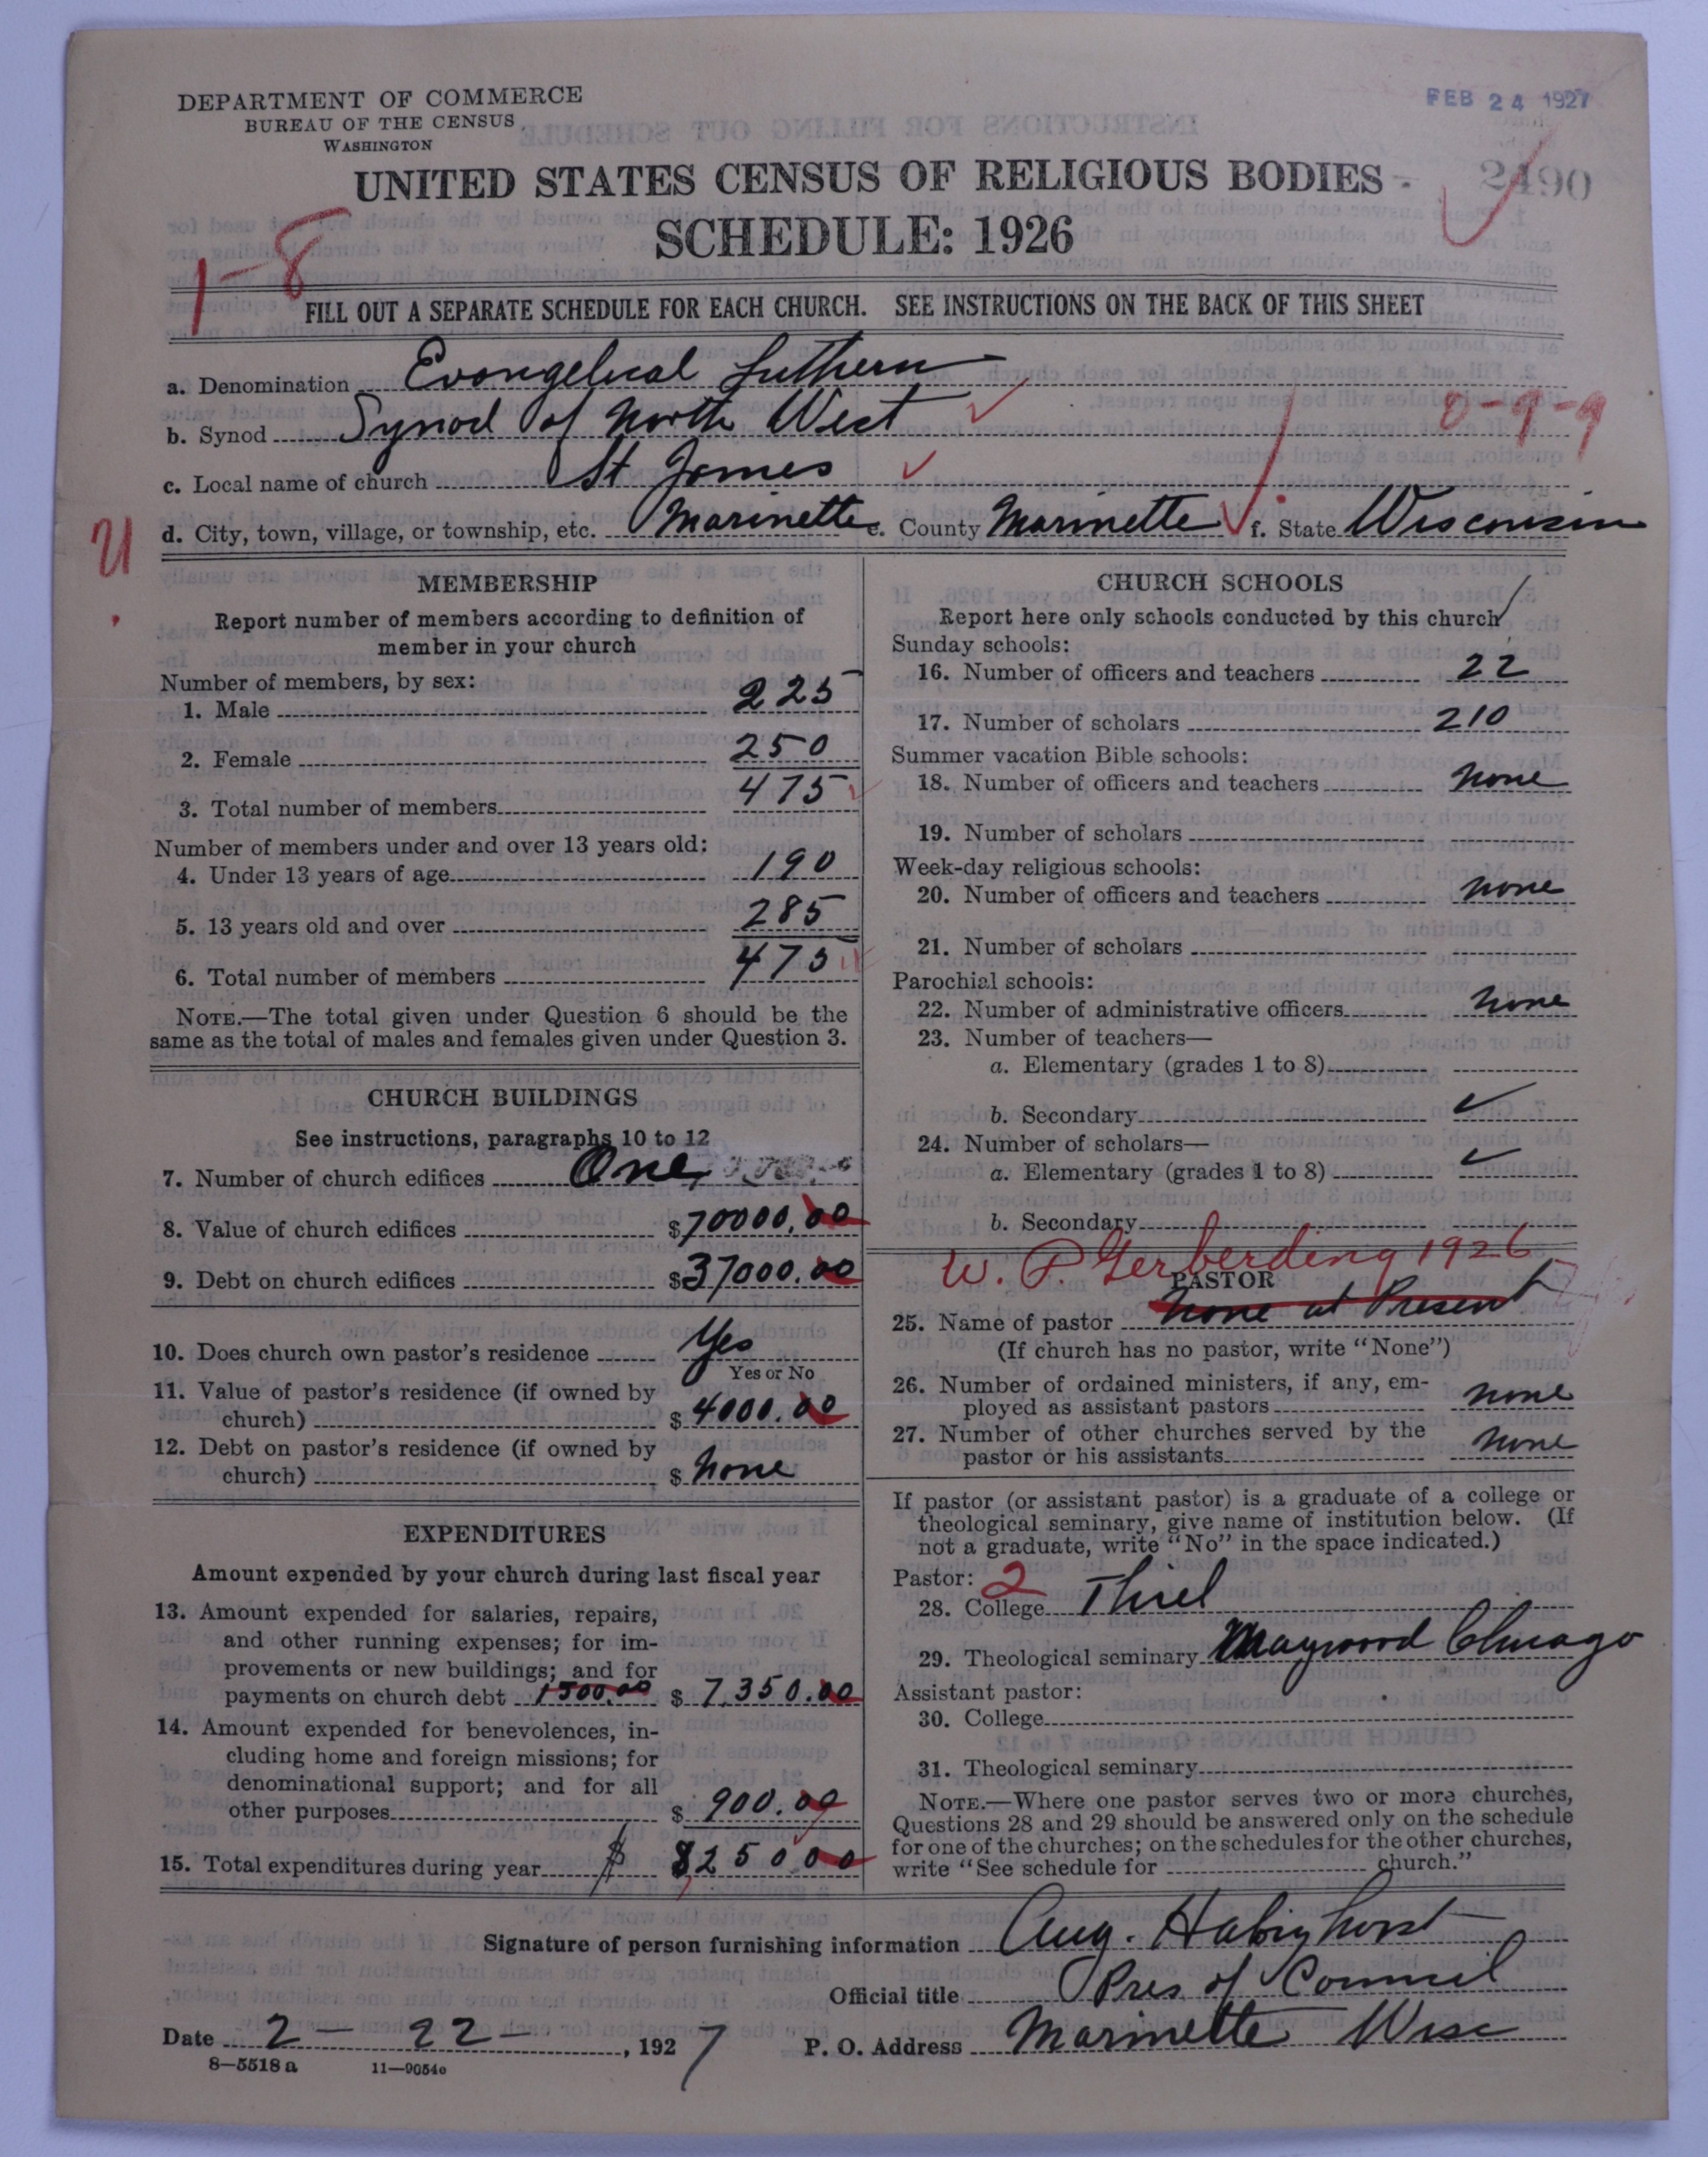 DEPARTMENT OF COMMERCE
BUREAU OF THE CENSUS
WASHINGTON
FEB 24 1927
2490
UNITED STATES CENSUS OF RELIGIOUS BODIES
SCHEDULE: 1926
1-8
FILL OUT A SEPARATE SCHEDULE FOR EACH CHURCH. SEE INSTRUCTIONS ON THE BACK OF THIS SHEET
a. Denomination Evangelical Luthern
b. Synod Synod of North West
0-9-9
c. Local name of church St James
U
d. City, town, village, or township, etc. Marinette e. County Marinette f. State Wisconsin
MEMBERSHIP
Report number of members according to definition of
member in your church
Number of members, by sex:
1. Male 225
2. Female 250
3. Total number of members 475
Number of members under and over 13 years old:
4. Under 13 years of age 190
5. 13 years old and over 285
6. Total number of members 475
NOTE.—The total given under Question 6 should be the
same as the total of males and females given under Question 3.
CHURCH BUILDINGS
See instructions, paragraphs 10 to 12
7. Number of church edifices One
8. Value of church edifices $70000.00
9. Debt on church edifices $37000.00
10. Does church own pastor's residence Yes
Yes or No
11. Value of pastor's residence (if owned by
church) $4000.00
12. Debt on pastor's residence (if owned by
church) $ None
EXPENDITURES
Amount expended by your church during last fiscal year
13. Amount expended for salaries, repairs,
and other running expenses; for im-
provements or new buildings; and for
payments on church debt 1500.00 $ 7,350.00
14. Amount expended for benevolences, in-
cluding home and foreign missions; for
denominational support; and for all
other purposes $ 900.00
15. Total expenditures during year $ 8250.00
CHURCH SCHOOLS
Report here only schools conducted by this church
Sunday schools:
16. Number of officers and teachers 22
17. Number of scholars 210
Summer vacation Bible schools:
18. Number of officers and teachers none
19. Number of scholars
Week-day religious schools:
20. Number of officers and teachers none
21. Number of scholars
Parochial schools:
22. Number of administrative officers none
23. Number of teachers—
a. Elementary (grades 1 to 8)
b. Secondary
24. Number of scholars—
a. Elementary (grades 1 to 8)
b. Secondary
W. P. Gerberding 1926
PASTOR
25. Name of pastor None at Present
(If church has no pastor, write "None")
26. Number of ordained ministers, if any, em-
ployed as assistant pastors none
27. Number of other churches served by the
pastor or his assistants none
If pastor (or assistant pastor) is a graduate of a college or
theological seminary, give name of institution below. (If
not a graduate, write "No" in the space indicated.)
Pastor: 2
28. College Thiel
29. Theological seminary Maywood Chicago
Assistant pastor:
30. College
31. Theological seminary
NOTE.—Where one pastor serves two or more churches,
Questions 28 and 29 should be answered only on the schedule
for one of the churches; on the schedules for the other churches,
write "See schedule for church."
Signature of person furnishing information Aug. Habighorst
Official title Pres of Council
Date 2-22-, 1927 P. O. Address Marinette Wisc
8—5518 a 11—9054c